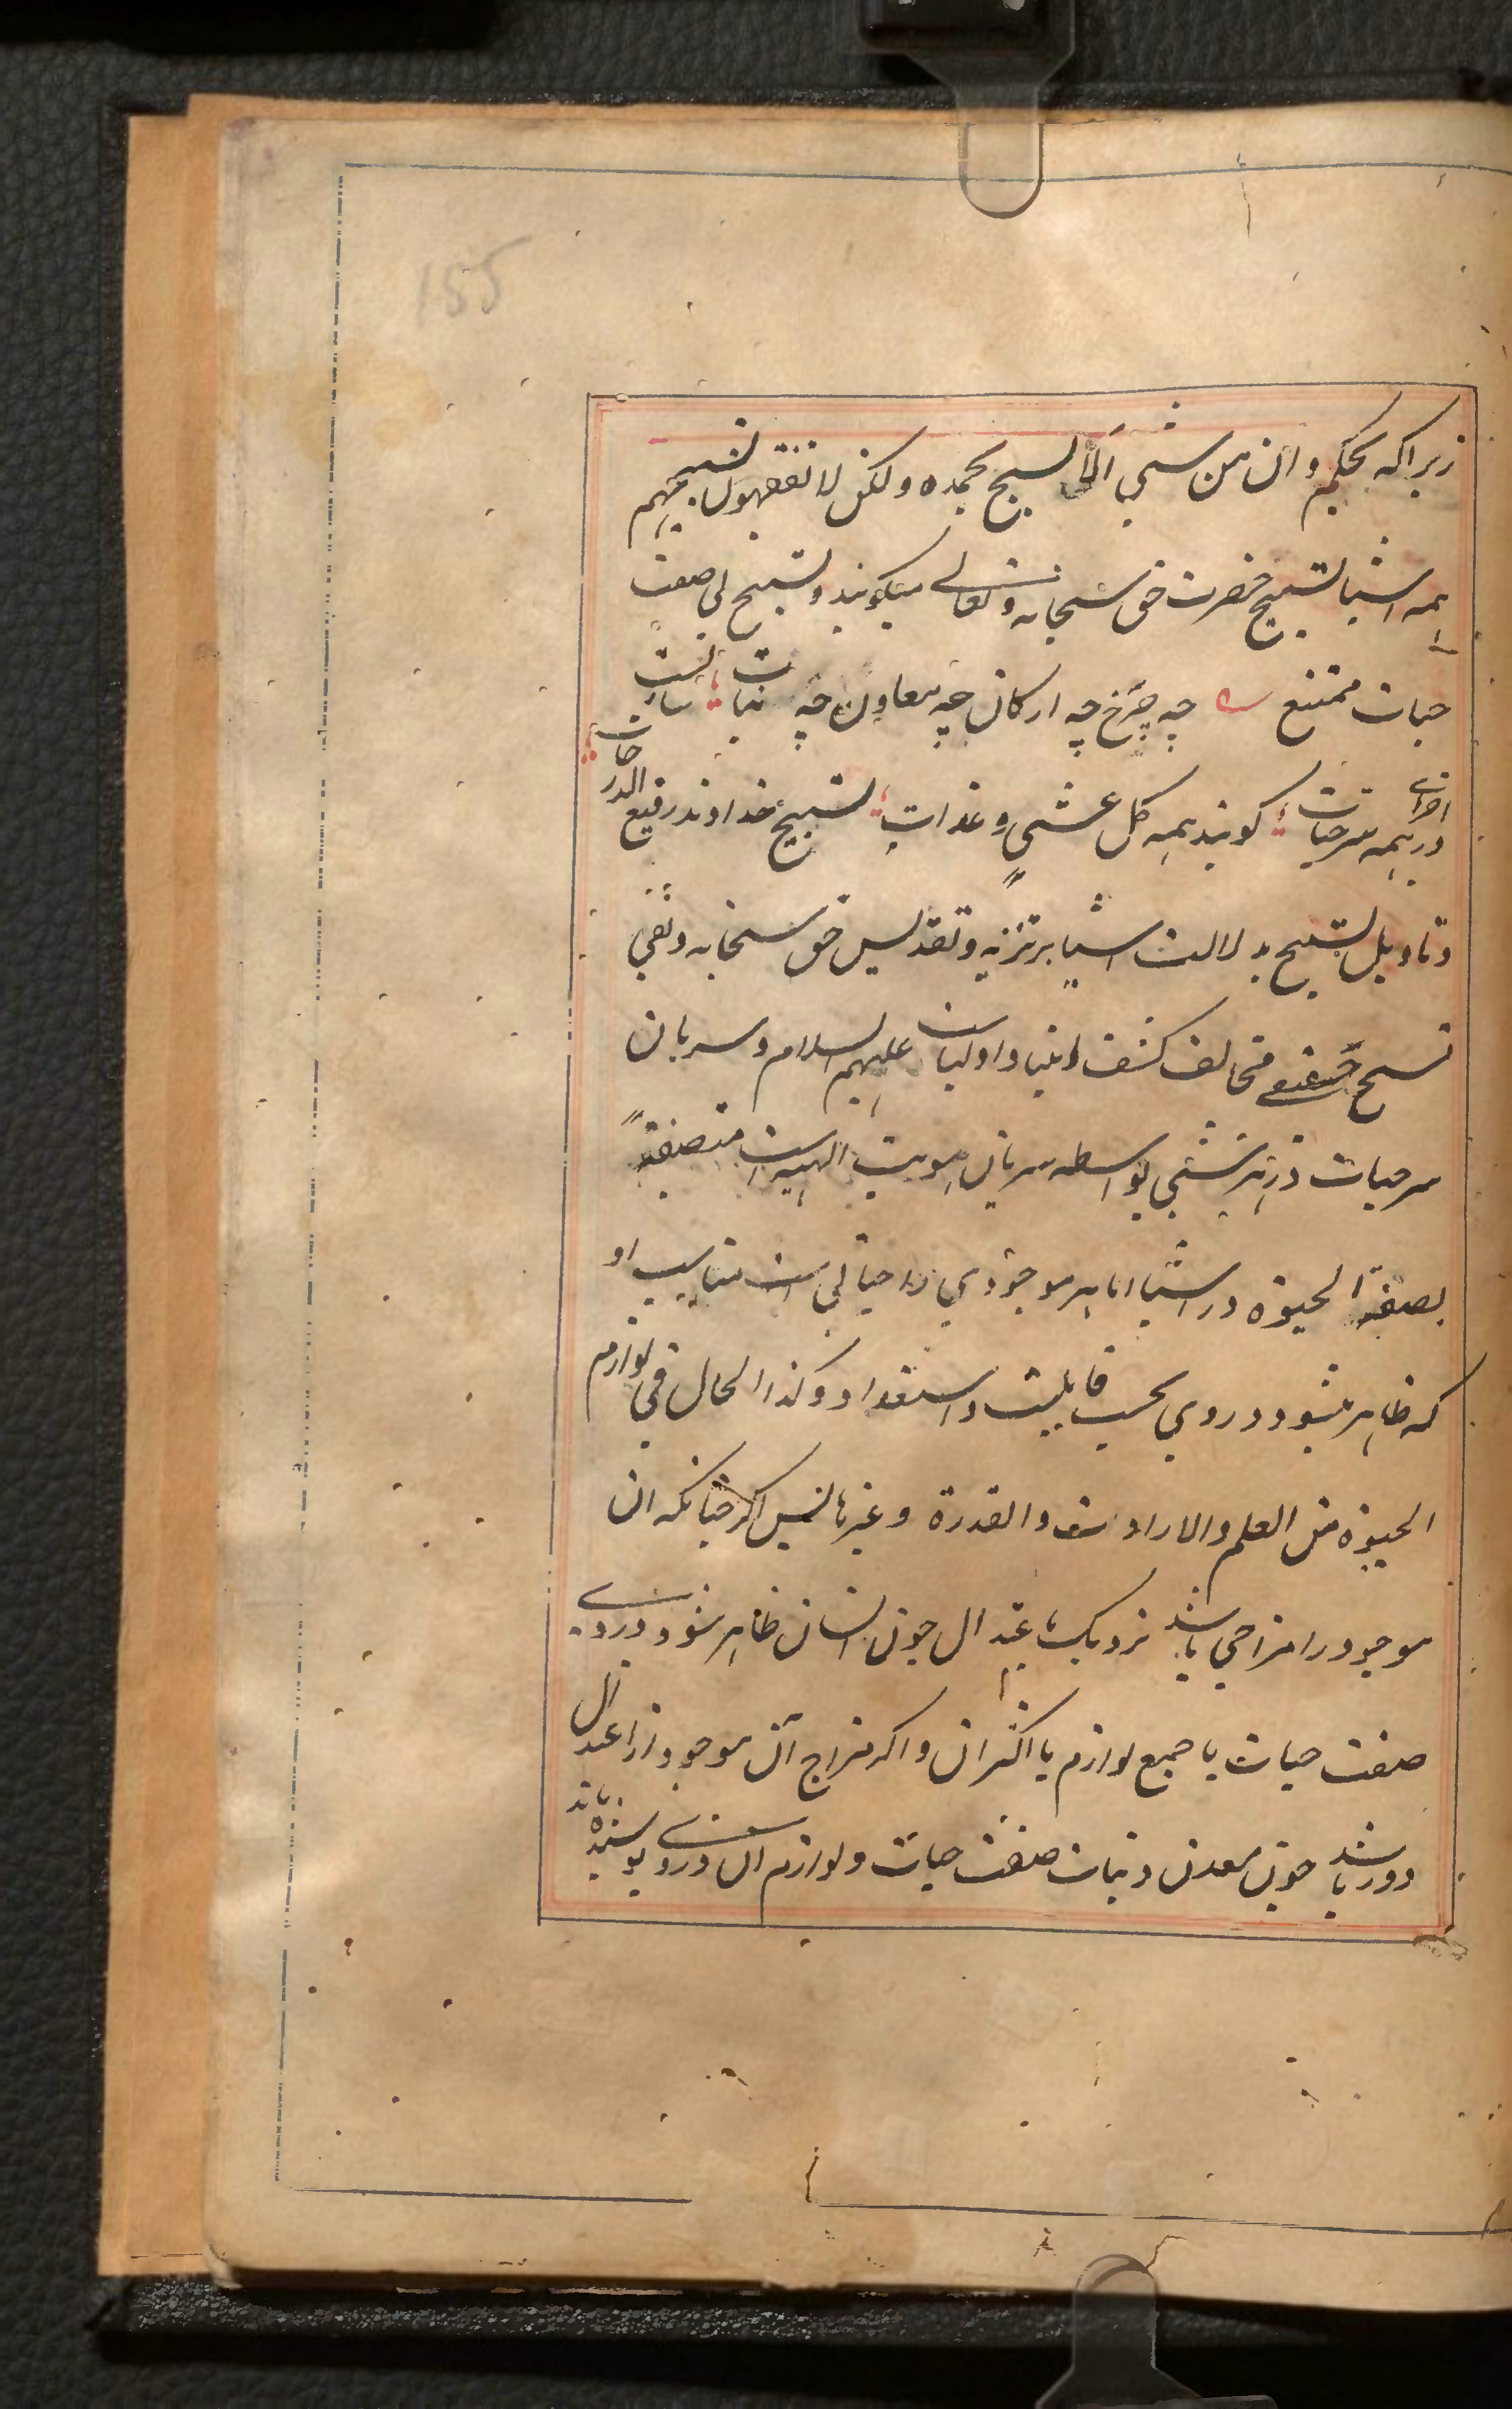 155
زیرا که بحکم و ان من شیء الا یسبح بحمده ولکن لا تفقهون تسبیحهم
همه اشیا تسبیح حضرت حق سبحانه وتعالی میگویند و تسبیح بی صفت
حیات ممتنع چه چرخ چه ارکان چه معادن چه نبات ساریست
در اجزای همه سر حیات گویند همه کل عشی و غدات تسبیح خداوند رفیع الدرجات
و تاویل تسبیح بدلالت اشیا بر تنزیه و تقدیس حق سبحانه و نفی
تسبیح حقیقی مخالف کشف انبیا و اولیاست علیهم السلام و سریان
سر حیات در هر شیی بواسطه سریان هویت الهیه است متصفةً
بصفة الحیوة در اشیا اما هر موجودی را حیاتی است مناسب او
که ظاهر میشود در وی بحسب قابلیت و استعداد و کذا الحال فی لوازم
الحیوة من العلم والارادت والقدرة و غیرها پس اگر چنانکه ان
موجود را مزاجی باشد نزدیک باعتدال چون انسان ظاهر شود در وی
صفت حیات با جمیع لوازم یا اکثر ان و اگر مزاج آن موجود از اعتدال
دور باشد چون معدن و نبات صفت حیات و لوازم ان در وی پوشیده ماند